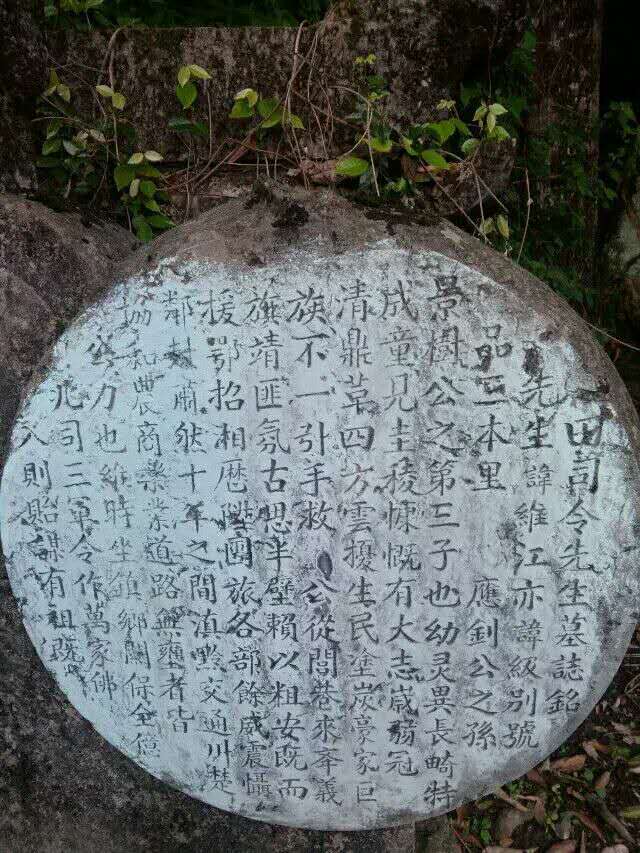 田司令先生墓誌銘
先生諱維江亦諱級別號
品三本里 應釗公之孫
景樹公之第三子也幼灵異長崎特
成童見圭稜慷慨有大志歲弱冠
清鼎革四方雲擾生民塗炭豪家巨
族不一引手救 公從閭巷來奉義
旗靖匪氛古思半壁賴以粗安既而
援鄂招相歷陞團旅各部餘威震懾
鄰封肅然十年之間滇黔交通川楚
和農商業道路無壅者皆
公力也維時坐鎮鄉關保全億
兆司三軍令作萬家佛
人則貽謀有祖